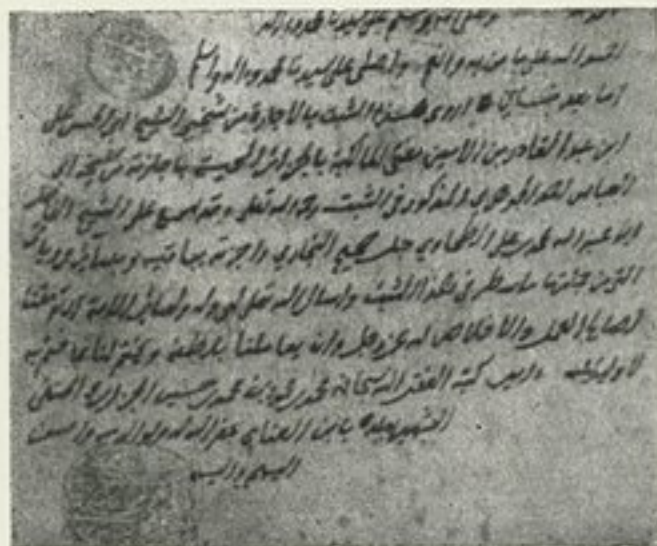 وصلى الله وسلم على سيدنا محمد وآله
احمد الله على ما من به وانعم واصلي على سيدنا محمد وآله واسلم
اما بعد فاني اروي هذا الثبت بالاجازة من شيخي الشيخ ابي الحسن علي
ابن عبد القادر بن الامين مفتي المالكية بالجزائر المحمية باجازته من شيخه ابي
العباس احمد الجوهري المذكور في الثبت رحمه الله تعالى وقد سمع علي الشيخ الفاضل
ابو عبد الله محمد بن علي الطحاوي جل صحيح البخاري واجزته بباقيه وبسائر مروياتي
التي من جملتها ما سطر في هذا الثبت واسال الله تعالى لي وله ولسائر الامة
العمل والاخلاص له عز وجل وان يعاملنا بلطفه ويختم لنا بما ختم به
لاوليائه امين كتبه الفقير اليه سبحانه محمد بن محمود بن محمد بن حسين الجزائري الحنفي
الشهير بابن العنابي غفر الله له ولوالديه واحسن
اليهم واليه